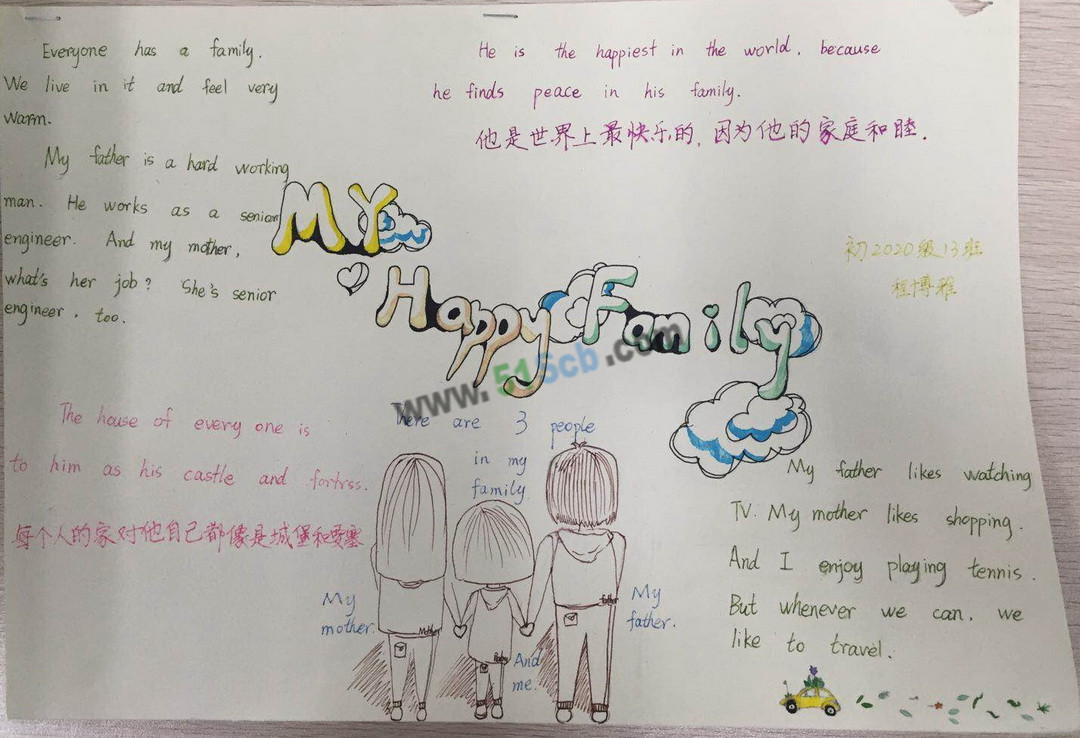 Everyone has a family.
We live in it and feel very
warm.
My father is a hard working
man. He works as a senior
engineer. And my mother,
what's her job? She's senior
engineer, too.
He is the happiest in the world, because
he finds peace in his family.
他是世界上最快乐的,因为他的家庭和睦.
MY
Happy Family
初2020级13班
程博雅
www.515cb.com
The house of every one is
to him as his castle and fortrss.
每个人的家对他自己都像是城堡和要塞
There are 3 people
in my
family.
My
mother.
Mother
And
me.
Baby
father
My
father.
My father likes watching
TV. My mother likes shopping.
And I enjoy playing tennis.
But whenever we can, we
like to travel.